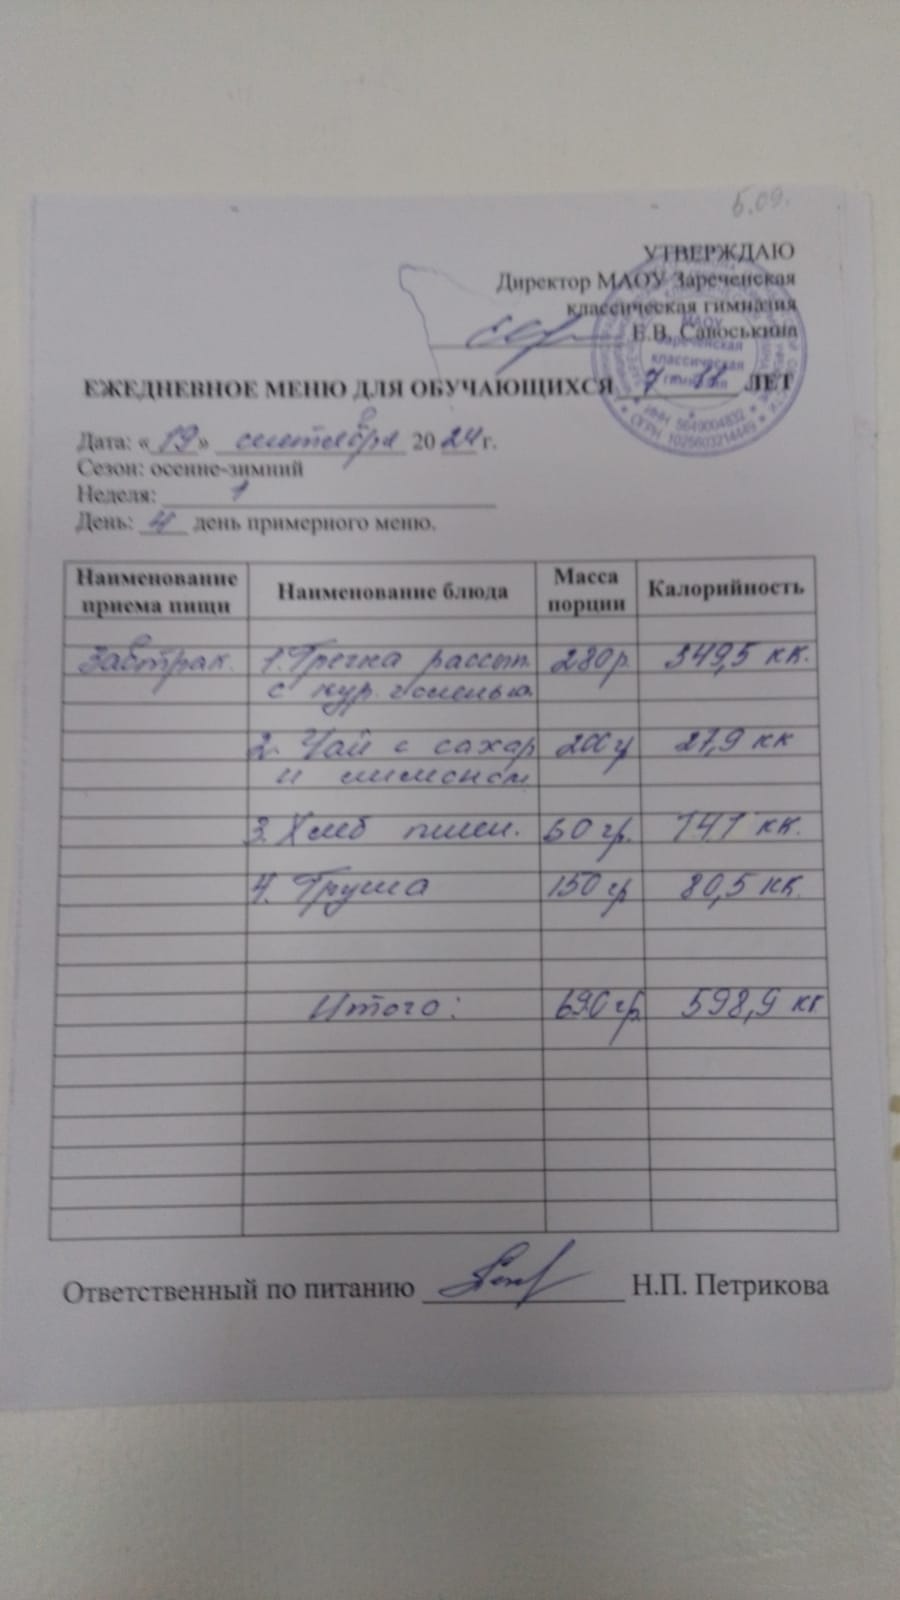 5.09.
УТВЕРЖДАЮ
Директор МАОУ Зареченская
классическая гимназия
Е.В. Савоськина
ЕЖЕДНЕВНОЕ МЕНЮ ДЛЯ ОБУЧАЮЩИХСЯ 7 - 11 ЛЕТ
МАОУ
Зареченская
классическая
гимназия
ИНН 5649004832 * ОГРН 1025603214449
Дата: «19» сентября 2024 г.
Сезон: осенне-зимний
Неделя: 1
День: 4 день примерного меню.
Наименование приема пищи Наименование блюда Масса порции Калорийность
Завтрак. 1. Гречка рассып. 280р. 349,5 кк.
с кур. голенью
2. Чай с сахар 200гр 27,9 кк
и лимоном
3. Хлеб пшен. 60 гр. 141 кк.
4. Груша 150 гр 80,5 кк.
Итого: 690 гр. 598,9 кк
Ответственный по питанию Н.П. Петрикова